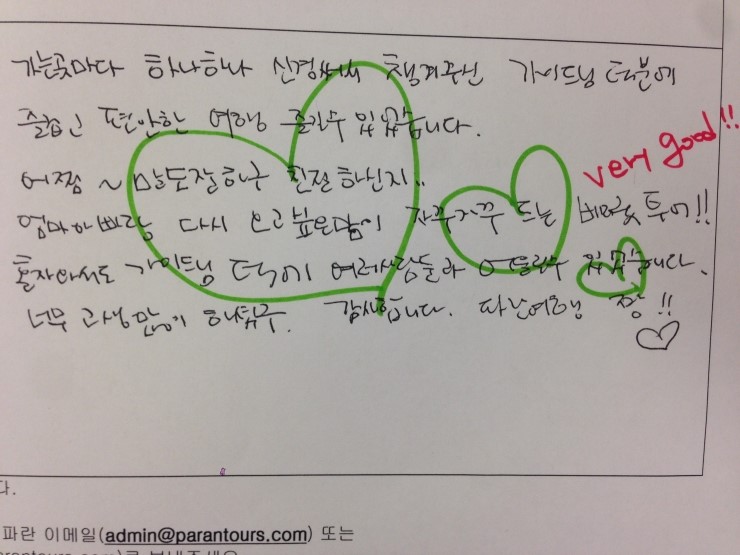 가는곳마다 하나하나 신경써서 챙겨주신 가이드님 덕분에
즐겁고 편안한 여행 즐길수 있었습니다.
very good!!
어쩜~ 말도잘하구 친절하신지..
엄마아빠랑 다시 오고싶은맘이 자꾸자꾸 드는 투어!!
혼자와서도 가이드님 덕에 여러사람들과 어울릴수 있었습니다.
너무 고생많이 하셨구. 감사합니다. 파란여행 짱!!
다.
파란 이메일(admin@parantours.com) 또는